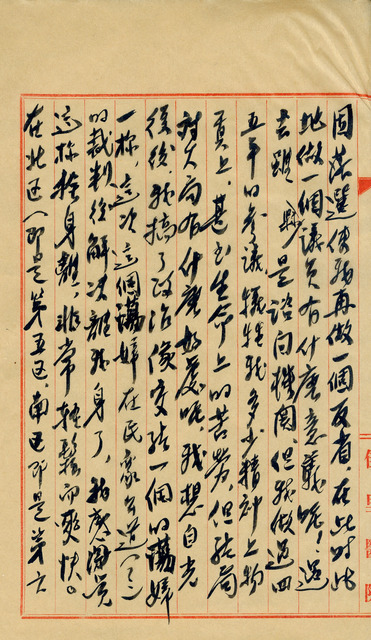 因落選使我再做一個反省在此時此
地做一個議員有什麼意義呢！過
去雖然是諮問機關，但我做過四
五年的參議犧牲我多少精神上物
質上，甚至生命上的苦勞，但結局
對大局有什麼好處呢，我想自光
復後，我搞了政治像交結一個的蕩婦
一樣，這次這個蕩婦在民衆公道（之）
的裁判後解決離我身了，我感覺
這樣於身離，非常輕鬆而爽快。
在北区（即是第五区，南区即是第六